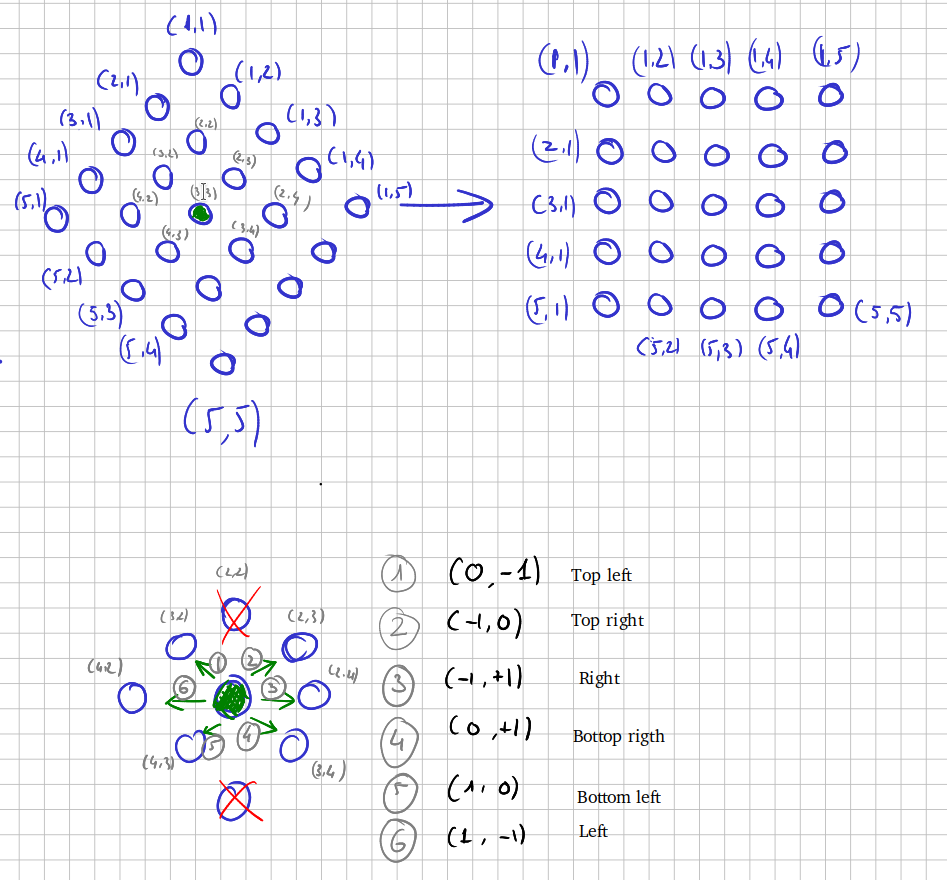 (1,1)
(2,1)
(1,2)
(3,1)
(2,2)
(1,3)
(4,1)
(3,2)
(2,3)
(1,4)
(5,1)
(4,2)
(3,3)
(2,4)
(1,5)
(4,3)
(3,4)
(5,2)
(5,3)
(5,4)
(5,5)
(1,1) (1,2) (1,3) (1,4) (1,5)
(2,1)
(3,1)
(4,1)
(5,1) (5,5)
(5,2) (5,3) (5,4)
(2,2)
(3,2) (2,3)
1 2
(4,2) 6 3 (2,4)
5 4
(4,3) (3,4)
1 (0,-1) Top left
2 (-1,0) Top right
3 (-1,+1) Right
4 (0,+1) Bottop rigth
5 (1,0) Bottom left
6 (1,-1) Left